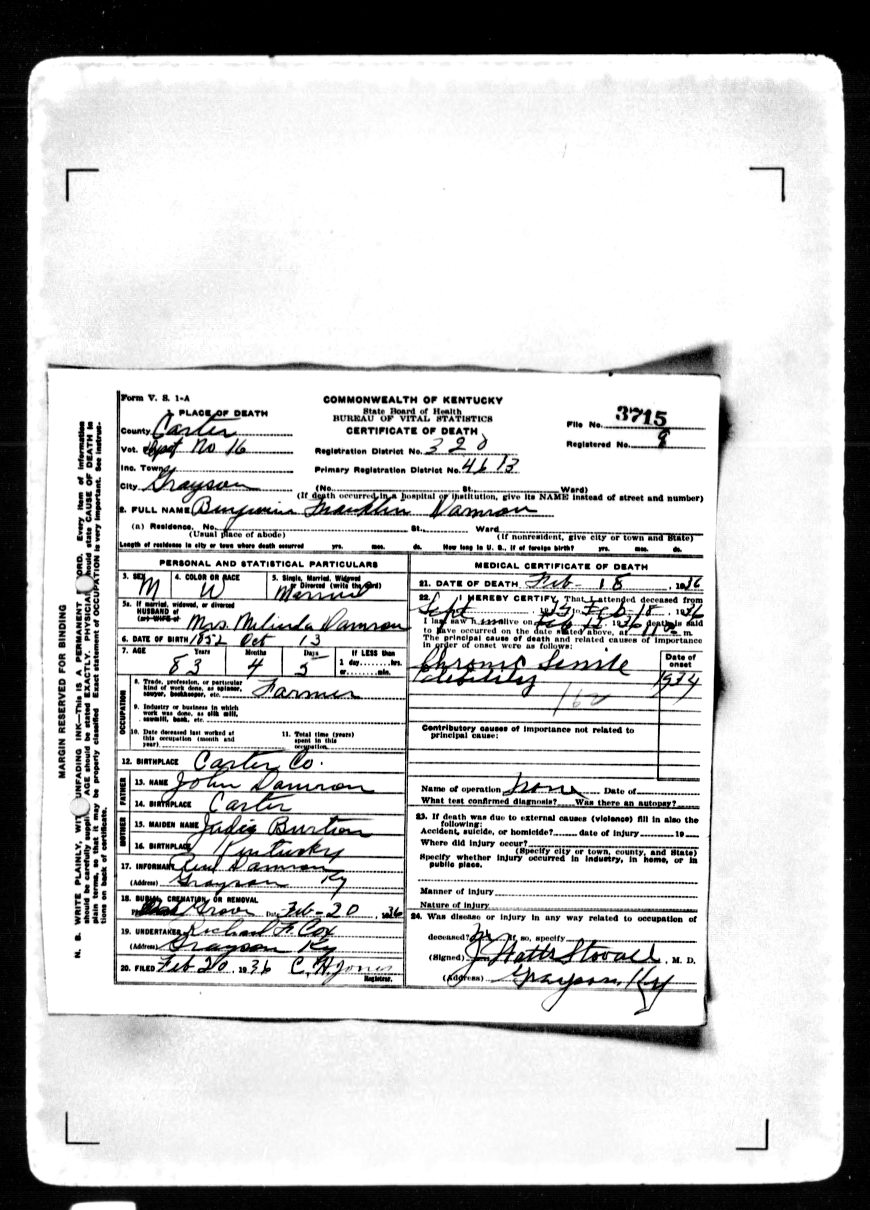 Form V. S. 1-A
COMMONWEALTH OF KENTUCKY
State Board of Health
BUREAU OF VITAL STATISTICS
CERTIFICATE OF DEATH
File No. 3715
Registered No. 9
1. PLACE OF DEATH
County Carter
Vot. Prect No 16
Registration District No. 320
Inc. Town
Primary Registration District No. 4613
City Grayson (No. St. Ward)
(If death occurred in a hospital or institution, give its NAME instead of street and number)
2. FULL NAME Benjamin Franklin Damron
(a) Residence. No. St. Ward
(Usual place of abode) (If nonresident, give city or town and State)
Length of residence in city or town where death occurred yrs. mos. ds. How long in U. S., if of foreign birth? yrs. mos. ds.
PERSONAL AND STATISTICAL PARTICULARS
3. SEX M
4. COLOR OR RACE W
5. Single, Married, Widowed or Divorced (write the word) Married
5a. If married, widowed, or divorced
HUSBAND of
(or) WIFE of Mrs. Milinda Damron
6. DATE OF BIRTH 1852 Oct 13
7. AGE Years Months Days If LESS than
83 4 5 1 day hrs.
or min.
OCCUPATION
8. Trade, profession, or particular
kind of work done, as spinner,
sawyer, bookkeeper, etc. Farmer
9. Industry or business in which
work was done, as silk mill,
sawmill, bank, etc.
10. Date deceased last worked at
this occupation (month and
year)
11. Total time (years)
spent in this
occupation
12. BIRTHPLACE Carter Co.
FATHER
13. NAME John Damron
14. BIRTHPLACE Carter
MOTHER
15. MAIDEN NAME Judia Burton
16. BIRTHPLACE Kentucky
17. INFORMANT Damron
(Address) Grayson Ky
18. BURIAL, CREMATION, OR REMOVAL
Grove Date Feb-20, 1936
19. UNDERTAKER Richard F. Cox
(Address) Grayson Ky
20. FILED Feb 20, 1936 C. H. Jones
Registrar.
MEDICAL CERTIFICATE OF DEATH
21. DATE OF DEATH Feb - 18, 1936
22. I HEREBY CERTIFY, That I attended deceased from
Sept 1935 Feb 18, 1936
I last saw h alive on Feb 1936 death is said
to have occurred on the date stated above, at m.
The principal cause of death and related causes of importance
in order of onset were as follows:
Date of
onset
Chronic Senile
debility 1934
162
Contributory causes of importance not related to
principal cause:
Name of operation None Date of
What test confirmed diagnosis? Was there an autopsy?
23. If death was due to external causes (violence) fill in also the
following:
Accident, suicide, or homicide? date of injury 19
Where did injury occur?
(Specify city or town, county, and State)
Specify whether injury occurred in industry, in home, or in
public place.
Manner of injury
Nature of injury
24. Was disease or injury in any way related to occupation of
deceased? No If so, specify
(Signed) J. Watts Stovall, M. D.
(Address) Grayson, Ky
MARGIN RESERVED FOR BINDING
N. B. WRITE PLAINLY, WITH UNFADING INK—This is a PERMANENT RECORD. Every item of information
should be carefully supplied. AGE should be stated EXACTLY. PHYSICIANS should state CAUSE OF DEATH in
plain terms, so that it may be properly classified. Exact statement of OCCUPATION is very important. See instruc-
tions on back of certificate.